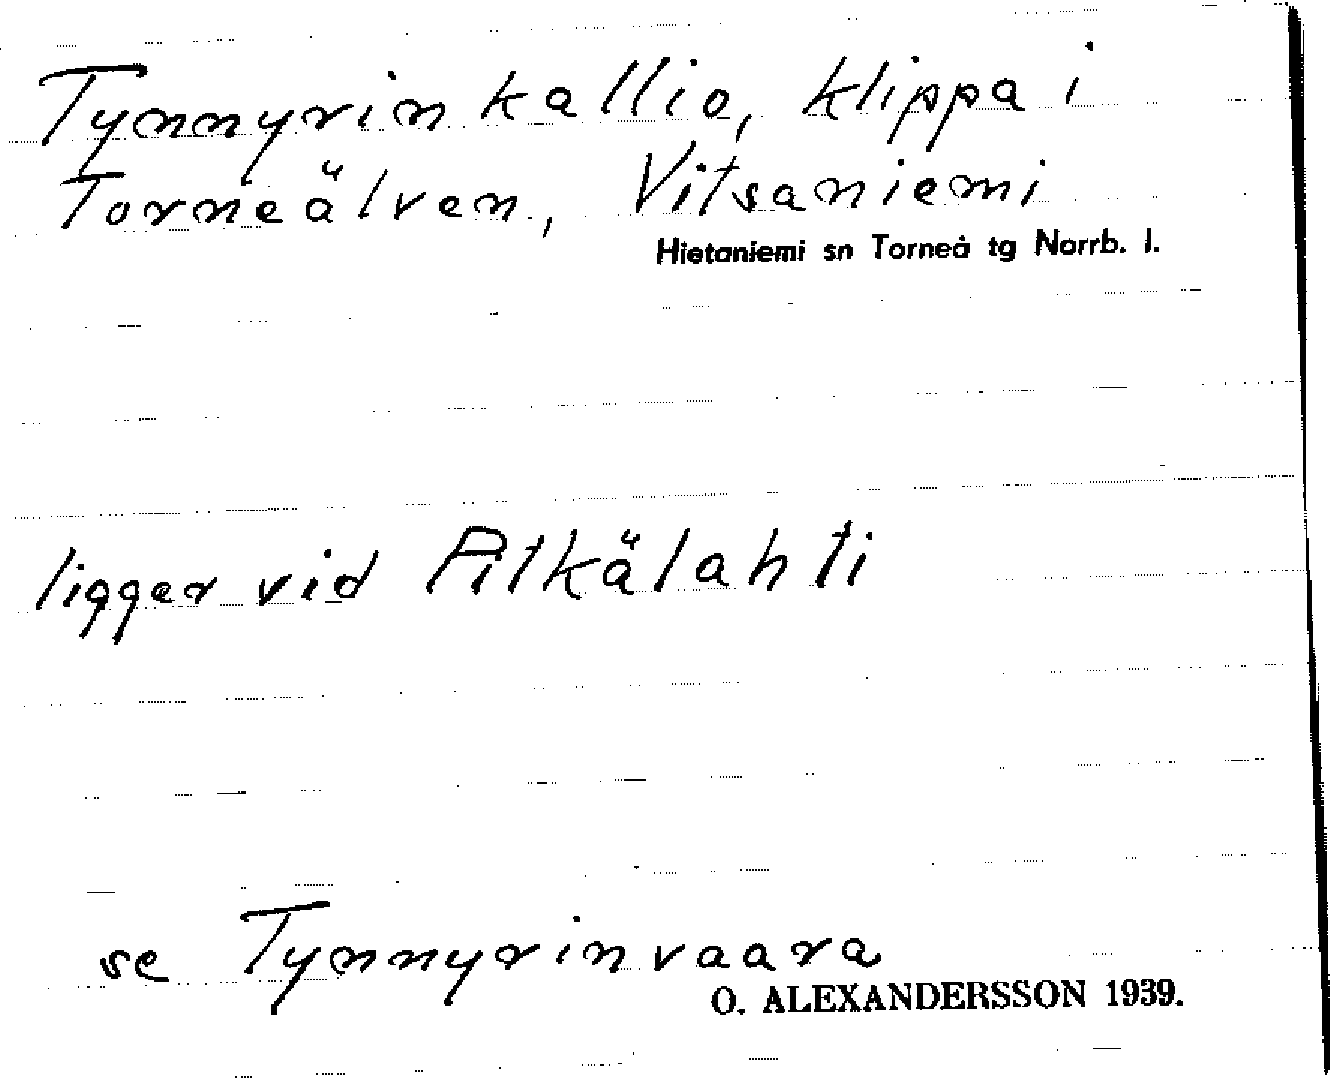 Tynnyrinkallio, klippa i
Torneälven, Vitsaniemi
Hietaniemi sn Torneå tg Norrb. l.
ligger vid Pitkälahti
se Tynnyrinvaara
O. ALEXANDERSSON 1939.